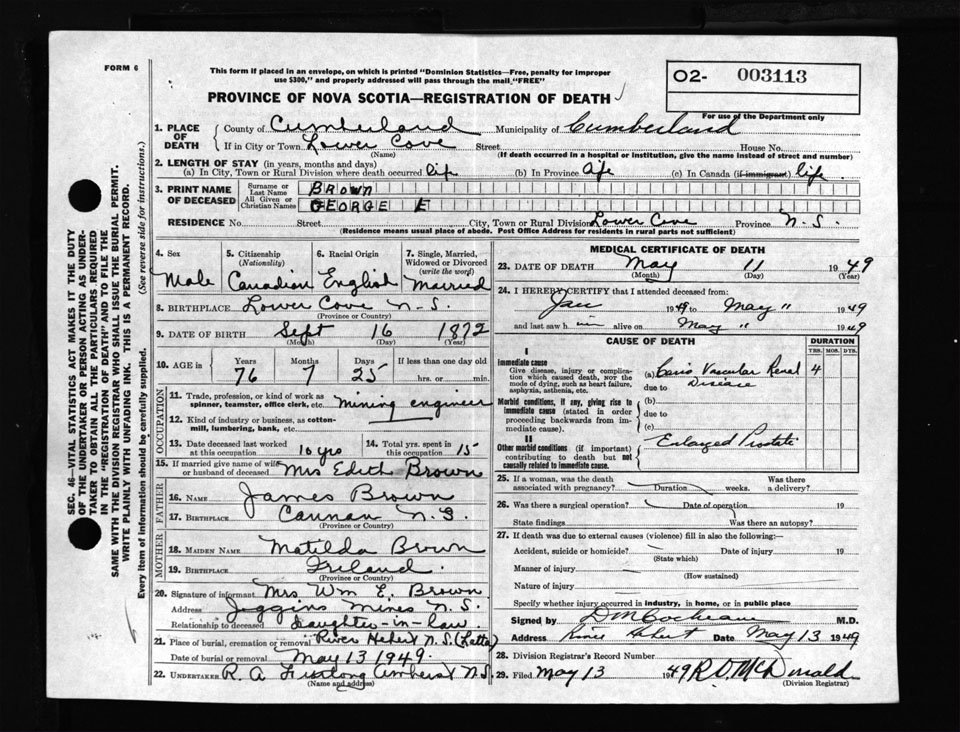 FORM 6
This form if placed in an envelope, on which is printed "Dominion Statistics—Free, penalty for improper
use $300," and properly addressed will pass through the mail "FREE"
PROVINCE OF NOVA SCOTIA—REGISTRATION OF DEATH
O2- 003113
For use of the Department only
1. PLACE OF DEATH
County of Cumberland Municipality of Cumberland
If in City or Town Lower Cove Street House No.
(Name) (If death occurred in a hospital or institution, give the name instead of street and number)
2. LENGTH OF STAY (in years, months and days)
(a) In City, Town or Rural Division where death occurred life (b) In Province life (c) In Canada (if immigrant) life
3. PRINT NAME OF DECEASED
Surname or Last Name BROWN
All Given or Christian Names GEORGE E
RESIDENCE No. Street City, Town or Rural Division Lower Cove Province N.S.
(Residence means usual place of abode. Post Office Address for residents in rural parts not sufficient)
4. Sex 5. Citizenship (Nationality) 6. Racial Origin 7. Single, Married, Widowed or Divorced (write the word)
Male Canadian English Married
8. BIRTHPLACE Lower Cove N.S.
(Province or Country)
9. DATE OF BIRTH Sept 16 1872
(Month) (Day) (Year)
10. AGE in Years Months Days If less than one day old
76 7 25 hrs. or min.
OCCUPATION
11. Trade, profession, or kind of work as spinner, teamster, office clerk, etc. Mining engineer
12. Kind of industry or business, as cotton-mill, lumbering, bank, etc.
13. Date deceased last worked at this occupation 10 yrs 14. Total yrs. spent in this occupation 15
15. If married give name of wife or husband of deceased Mrs Edith Brown
FATHER
16. NAME James Brown
17. BIRTHPLACE Cannan N.S.
(Province or Country)
MOTHER
18. MAIDEN NAME Matilda Brown
19. BIRTHPLACE Ireland
(Province or Country)
20. Signature of informant Mrs Wm E. Brown
Address Joggins Mines N.S.
Relationship to deceased Daughter-in-law
21. Place of burial, cremation or removal River Hebert N.S.
Date of burial or removal May 13 1949
22. UNDERTAKER R. A. Amherst N.S.
(Name and address)
MEDICAL CERTIFICATE OF DEATH
23. DATE OF DEATH May 11 1949
(Month) (Day) (Year)
24. I HEREBY CERTIFY that I attended deceased from:
Jan 1949 to May 11 1949
and last saw him alive on May 11 1949
CAUSE OF DEATH DURATION
YRS. MOS. DYS.
I
Immediate cause
Give disease, injury or complication which caused death, NOT the mode of dying, such as heart failure, asphyxia, asthenia, etc.
(a) Cardio Vascular Renal 4
due to Disease
Morbid conditions, if any, giving rise to immediate cause (stated in order proceeding backwards from immediate cause).
(b)
due to
(c)
II
Other morbid conditions (if important) contributing to death but not causally related to immediate cause.
Enlarged Prostate
25. If a woman, was the death associated with pregnancy? Duration weeks. Was there a delivery?
26. Was there a surgical operation? Date of operation 19
State findings Was there an autopsy?
27. If death was due to external causes (violence) fill in also the following:
Accident, suicide or homicide? Date of injury 19
(State which)
Manner of injury
(How sustained)
Nature of injury
Specify whether injury occurred in industry, in home, or in public place
Signed by D M Cochrane M.D.
Address River Hebert Date May 13 1949
28. Division Registrar's Record Number
29. Filed May 13 1949 R. D. McDonald
(Division Registrar)
SEC. 46—VITAL STATISTICS ACT MAKES IT THE DUTY
OF THE UNDERTAKER OR PERSON ACTING AS UNDER-
TAKER TO OBTAIN ALL THE PARTICULARS REQUIRED
IN THE "REGISTRATION OF DEATH" AND TO FILE THE
SAME WITH THE DIVISION REGISTRAR WHO SHALL ISSUE THE BURIAL PERMIT.
WRITE PLAINLY WITH UNFADING INK. THIS IS A PERMANENT RECORD.
Every item of information should be carefully supplied. (See reverse side for instructions.)